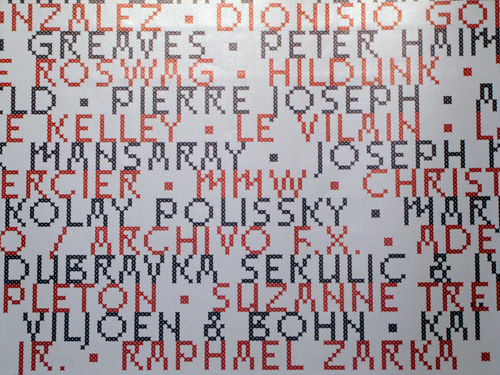 NZALEZ · DIONISIO GO
GREAVES · PETER HAIM
E ROSWAG · HILDINK ·
LD · PIERRE JOSEPH ·
E KELLEY · LE VILAIN ·
MANSARAY · JOSEPH
ERCIER · MMW · CHRIST
KOLAY POLISSKY · MAR
O / ARCHIVO F.X. · ADE
DUBRAVKA SEKULIC &
PLETON · SUZANNE TRE
VILJOEN & BOHN · KAI
JR. · RAPHAEL ZARKA ·